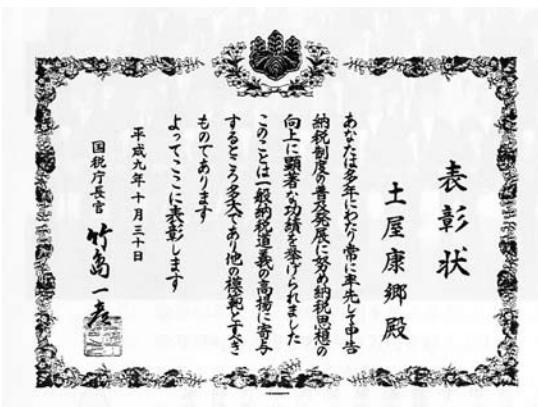 表彰状
土屋康郷殿
あなたは多年にわたり常に率先して申告
納税制度の普及発展に努め納税思想の
向上に顕著な功績を挙げられました
このことは一般納税道義の高揚に寄与
するところ多大であり他の模範とすべき
ものであります
よってここに表彰します
平成九年十月三十日
国税庁長官 竹島一彦